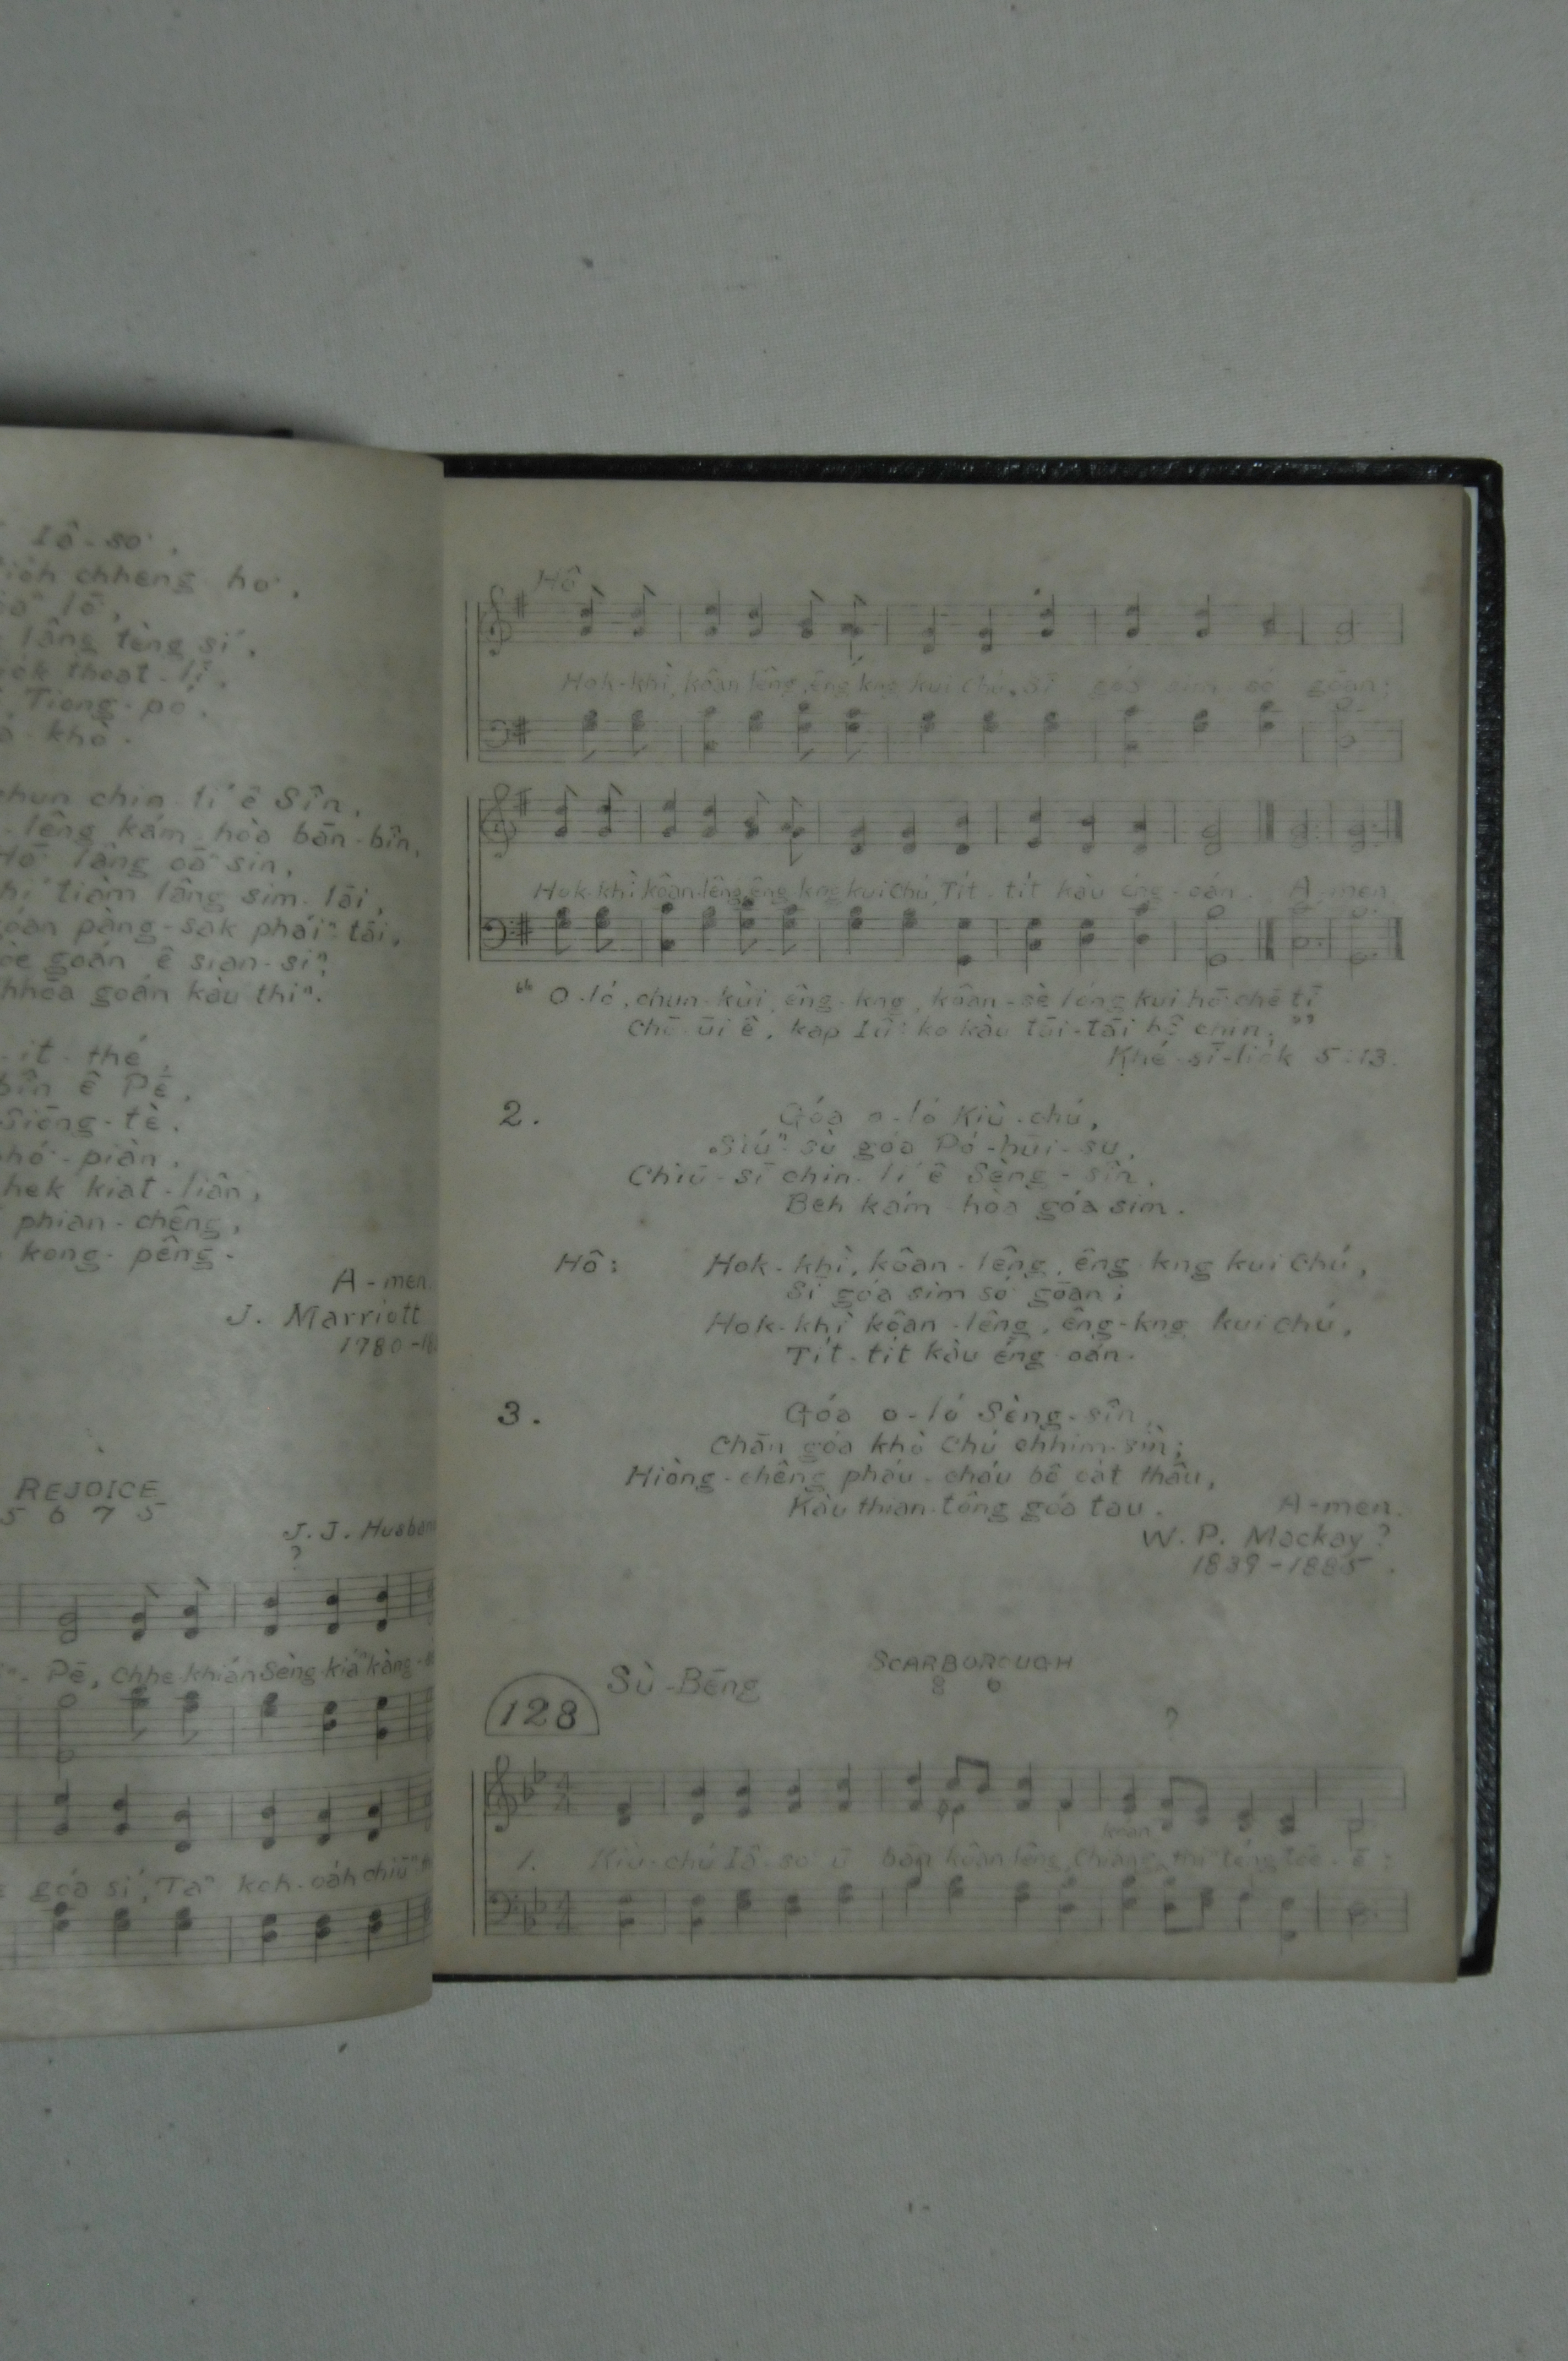 Iâ-so͘,
chheng ho͘,
lō͘,
lâng tèng sí,
thoat-lī,
Tiong-pó,
khó͘.
chun chin lí ê Sîn,
-lêng kám-hòa bān-bîn,
Hō͘ lâng oā sin,
tiàm lâng sim-lāi,
góan pàng-sak pháiⁿ tāi,
goán ê sian-siⁿ,
chhōa goán kàu thiⁿ.
-it-thé,
bîn ê Pē,
Siōng-tè.
phó͘-piàn,
kiat-liân,
phian-chêng,
kong-pêng.
A-men.
J. Marriott
1780-18
REJOICE
5 6 7 5
J. J. Husban
?
Pē, Chhe-khián Sèng-kiáⁿ kàng-
góa sí, Taⁿ koh-oáh chiūⁿ
Hô
Hok-khì, kôan lêng, êng kng kui Chú, Sī góa sim só͘ gōan;
Hok-khì kôan-lêng, êng-kng kui Chú, Tit-tit kàu éng-oán. A-men.
“O-ló, chun-kùi, êng-kng, kôan-sè lóng kui hō͘ chē tī
Chō-ūi ê, kap Iûⁿ-ko kàu tāi-tāi bô chīn.”
Khé-sī-liok 5:13.
2. Góa o-ló Kiù-chú,
Siúⁿ-sù góa Pó-hūi-su,
Chiū-sī chin-lí ê Sèng-sîn,
Beh kám-hòa góa sim.
Hô: Hok-khì, kôan-lêng, êng-kng kui Chú,
Sī góa sim só͘ gōan;
Hok-khì kôan-lêng, êng-kng kui Chú,
Tit-tit kàu éng-oán.
3. Góa o-ló Sèng-sîn,
Chān góa khò Chú chhim-sìn;
Hiòng-chêng pháu-cháu bô oat thâu,
Kàu thian-tông góa tau. A-men.
W. P. Mackay?
1839-1885.
128 Sù-Bēng SCARBOROUGH
8 6
?
koan
1. Kiù-chú Iâ-so͘ ū bān kôan lêng, Chiáng thiⁿ-téng